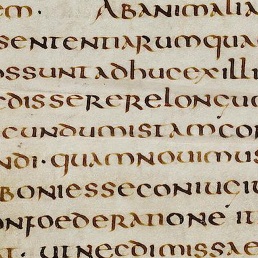 em · Ab animalia
sententiarum qua
ossunt adhuc ex illi
edisserere longum
ecundum istam con
ndi · quam novimus
boni esse coniucit
onfoederatione it
at · ut nec dimissa e